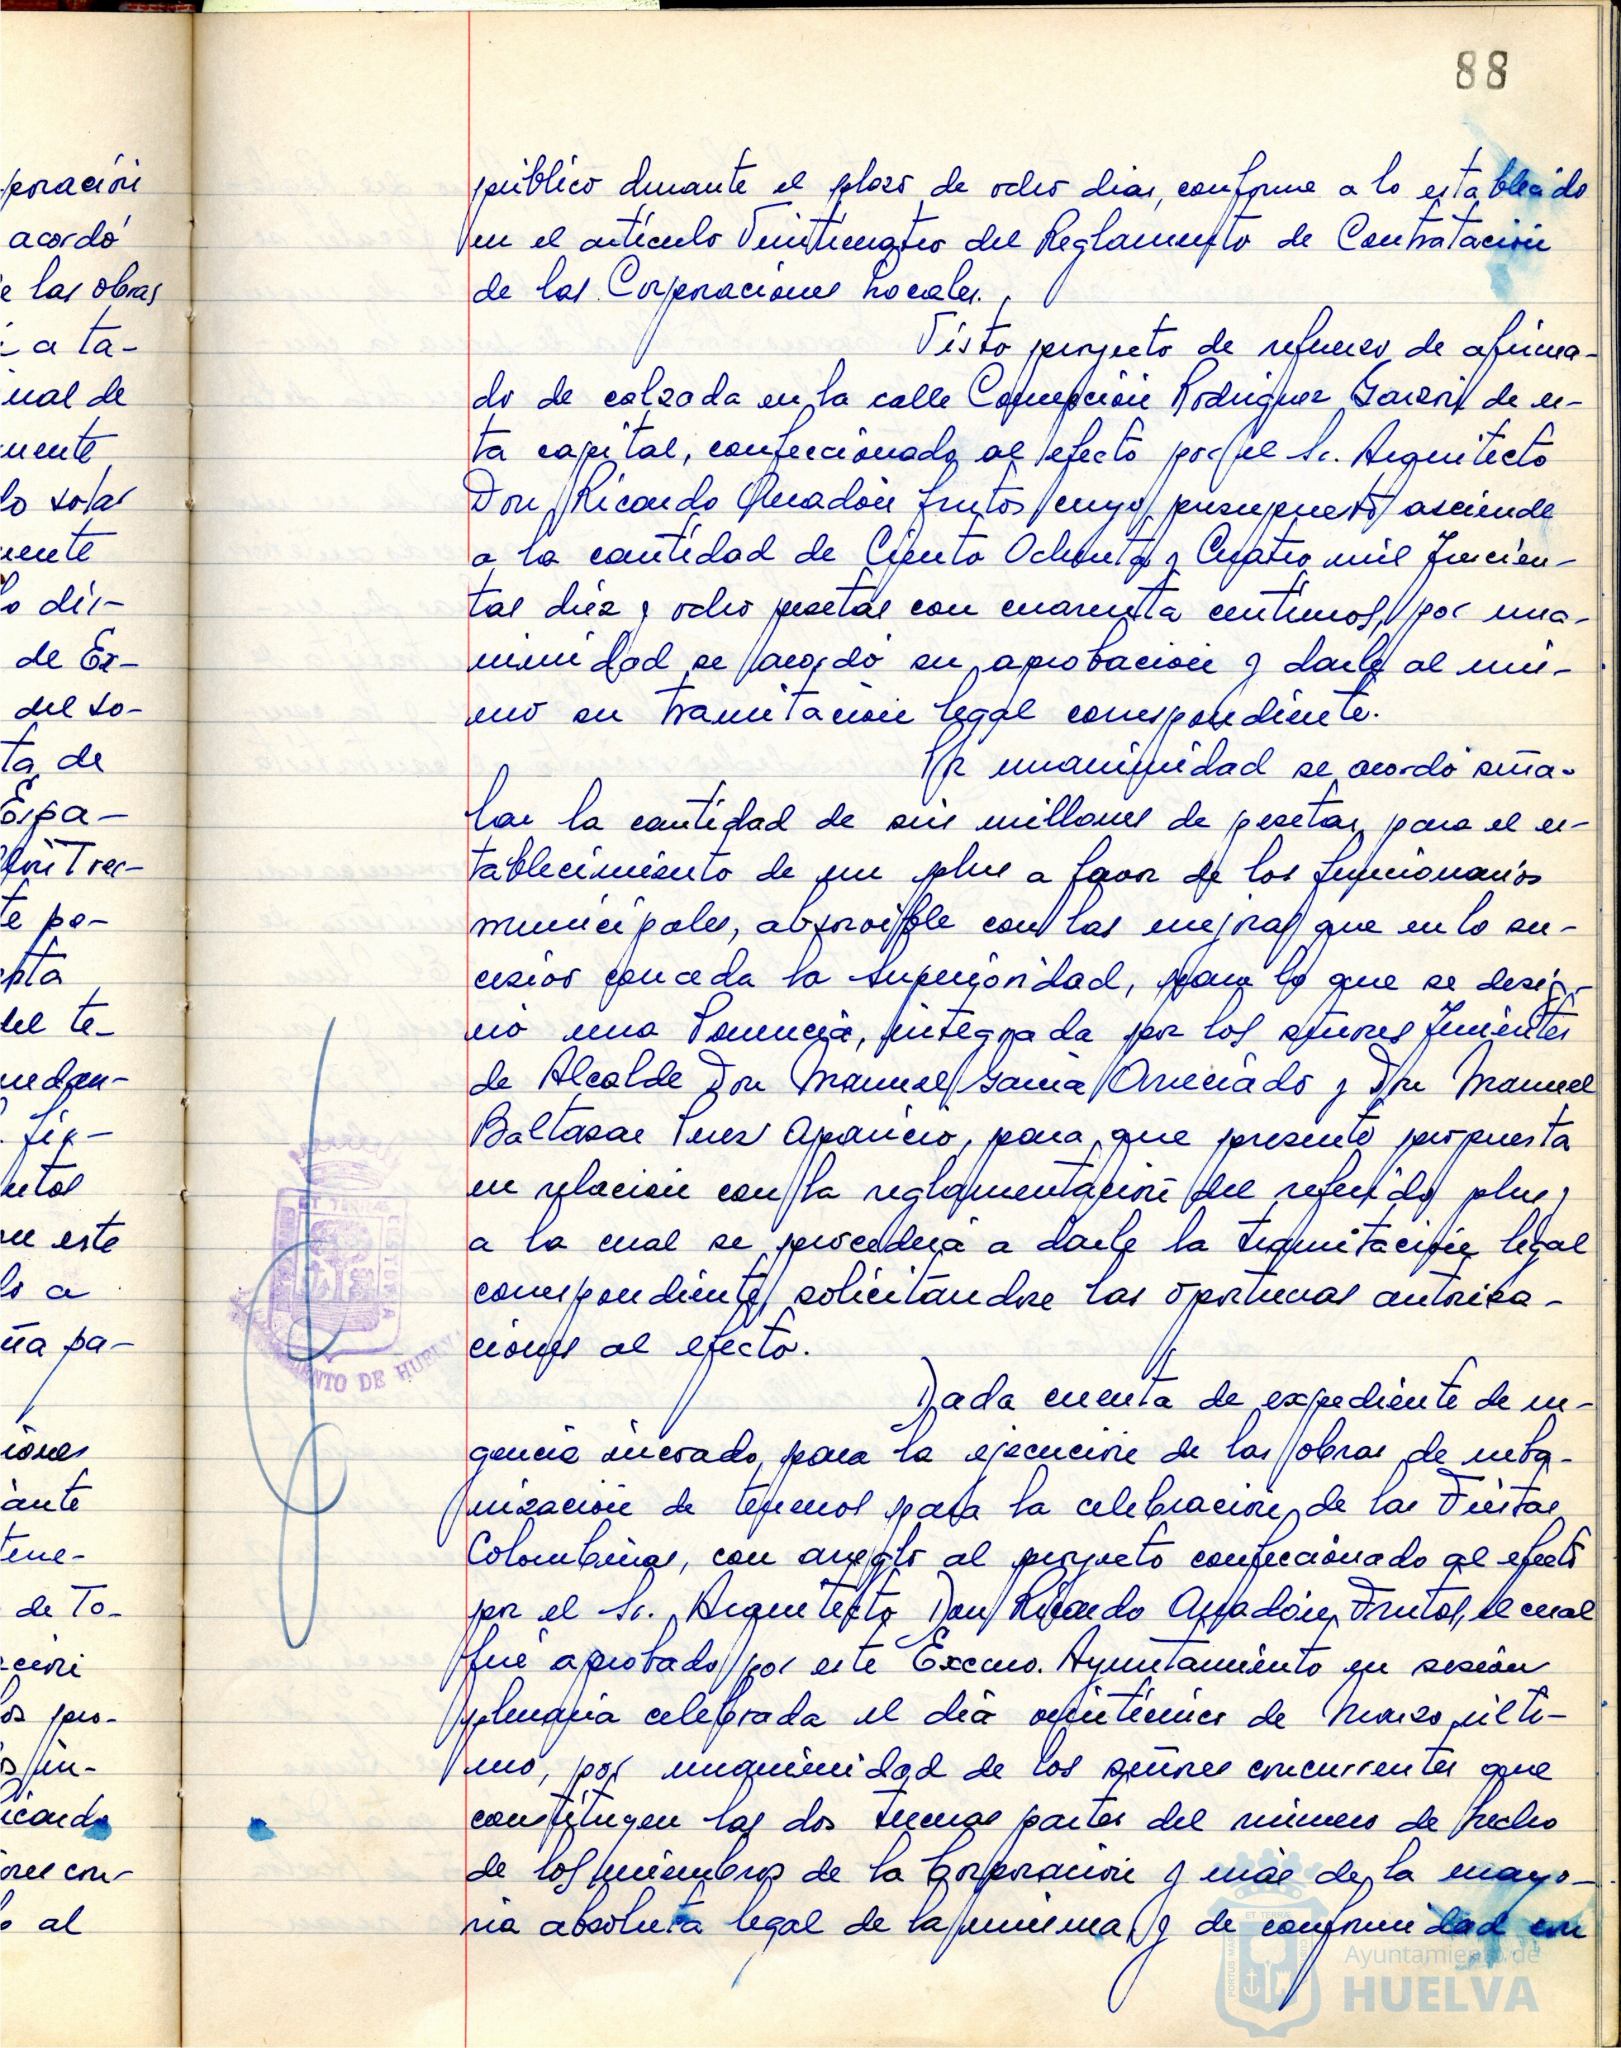 88
poración
acordó
e las obras
a ta-
ual de
mente
lo solar
mente
lo dis-
de Ex-
del so-
ta de
Espa-
Trec-
te pe-
esta
del te-
uedan-
fir-
entos
en este
lo a
ña pa-
iones
ante
tene-
de To-
ción
os pro-
s in-
icardo
ores con-
al
público durante el plazo de ocho dias, conforme a lo establecido
en el artículo Veinticuatro del Reglamento de Contratación
de las Corporaciones Locales.
Visto proyecto de refuerzo de afirma-
do de calzada en la calle Concepción Rodriguez Garzón de es-
ta capital, confeccionado al efecto por el Sr. Arquitecto
Don Ricardo Anadón Frutos cuyo presupuesto asciende
a la cantidad de Ciento Ochenta y Cuatro mil Trescien-
tas diez y ocho pesetas con cuarenta centimos, por una-
nimidad se acordó su aprobación y darle al mis-
mo su tramitación legal correspondiente.
Por unanimidad se acordó seña-
lar la cantidad de seis millones de pesetas para el es-
tablecimiento de un plus a favor de los funcionarios
municipales, absorvible con las mejoras que en lo su-
cesivo conceda la Superioridad, para lo que se desig-
nó una Ponencia, integrada por los señores Tenientes
de Alcalde Don Manuel Garcia Arreciado y Don Manuel
Baltasar Perez Aparicio, para que presente propuesta
en relación con la reglamentación del referido plus,
a la cual se procederá a darle la tramitación legal
correspondiente, solicitándose las oportunas autoriza-
ciones al efecto.
Dada cuenta de expediente de ur-
gencia incoado, para la ejecución de las obras de urba-
nización de terrenos para la celebración de las Fiestas
Colombinas, con arreglo al proyecto confeccionado al efecto
por el Sr. Arquitecto Don Ricardo Anadón Frutos, el cual
fué aprobado por este Excmo. Ayuntamiento en sesión
plenaria celebrada el día veinticinco de Marzo últi-
mo, por unanimidad de los señores concurrentes que
constituyen las dos terceras partes del número de hecho
de los miembros de la Corporación y más de la mayo-
ria absoluta legal de la misma, y de conformidad con
ET TERRAE
AYUNTAMIENTO DE HUELVA
Ayuntamiento de
HUELVA